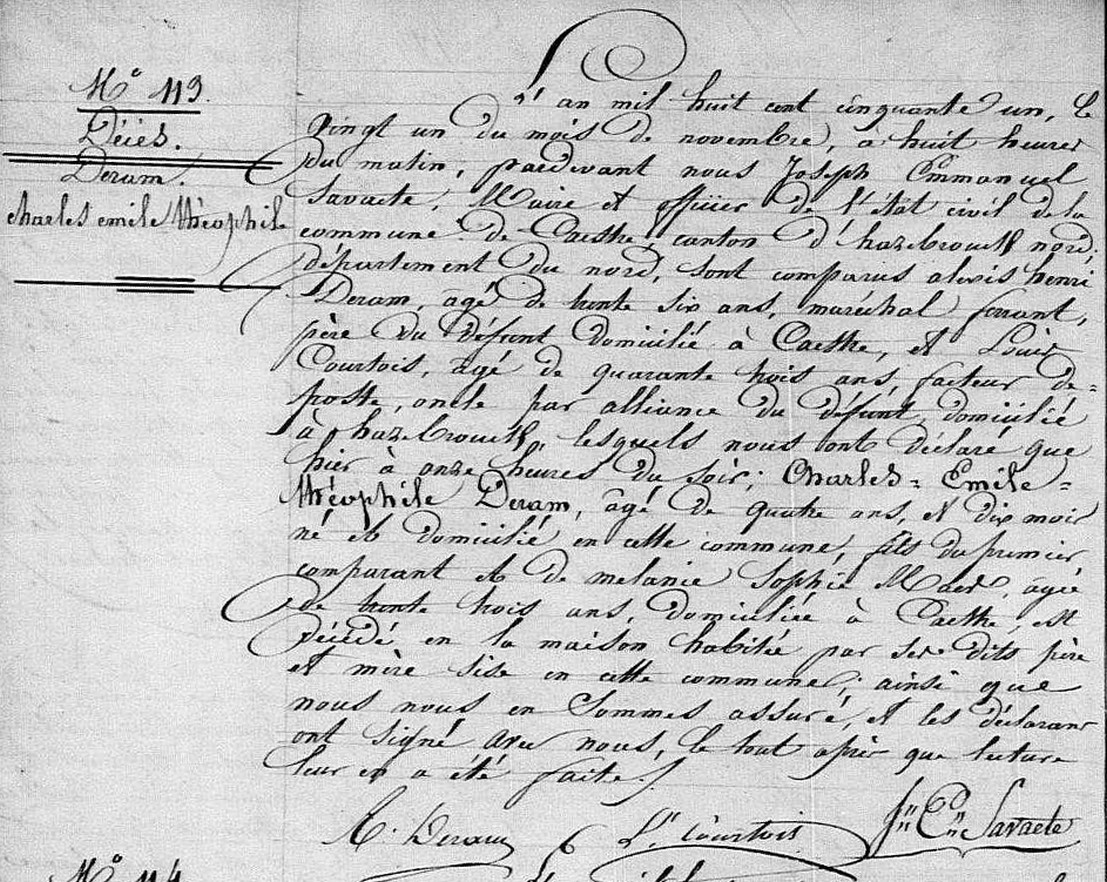 N° 113
Décés.
Deram.
charles emile théophile
L'an mil huit cent cinquante un, le
vingt un du mois de novembre, à huit heures
du matin, pardevant nous Joseph Emmanuel
Savaete, Maire et officier de l'état civil de la
commune de Caestre, canton d'hazebrouck nord,
département du nord, sont comparus alexis henri
Deram, âgé de trente six ans, maréchal ferrant,
père du défunt domicilié à Caestre, et Louis
Courtois, âgé de quarante trois ans, facteur de=
poste, oncle par alliance du défunt domicilié
à hazebrouck, lesquels nous ont déclaré que
hier à onze heures du soir; Charles=Emile=
théophile Deram, âgé de quatre ans, et dix mois
né et domicilié en cette commune, fils du premier
comparant et de melanie Sophie Maes, âgée
de trente trois ans, domiciliée à Caestre, est
décédé en la maison habitée par ses dits père
et mère sise en cette commune; ainsi que
nous nous en Sommes assuré, et les déclarans
ont signé avec nous, le tout après que lecture
leur en a été faite./.
Deram L. Courtois Jh Em Savaete
N° 114